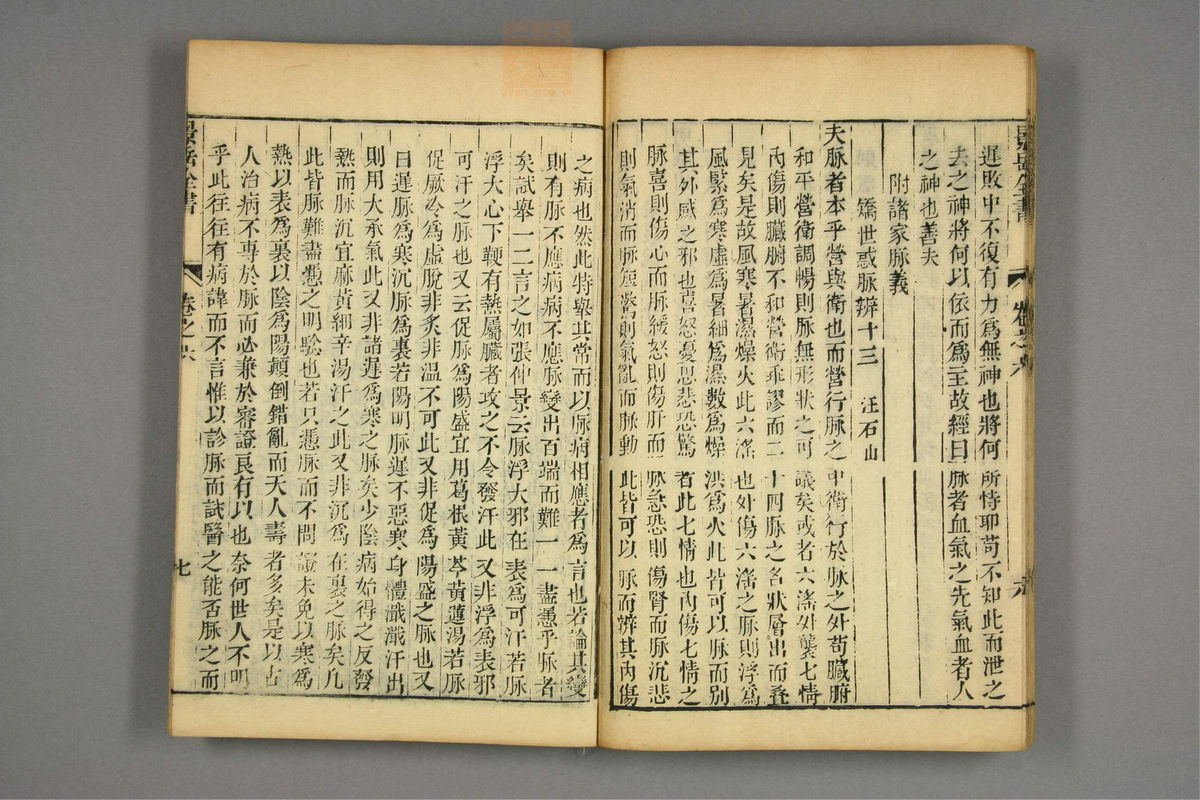 景岳全書
卷之六
六
遲敗中不復有力爲無神也將何所恃耶苟不知此而泄之
去之神將何以依而爲主故經曰脉者血氣之先氣血者人
之神也善夫
附諸家脉義
矯世惑脉辨十三 汪石山
夫脉者本乎營與衛也而營行脉之中衛行於脉之外苟臟腑
和平營衛調暢則脉無形狀之可議矣或者六滛外襲七情
內傷則臟腑不和營衛乖謬而二十四脉之名狀層出而疊
見矣是故風寒暑濕燥火此六滛也外傷六滛之脉則浮爲
風緊爲寒虛爲暑細爲濕數爲燥洪爲火此皆可以脉而別
其外感之邪也喜怒憂思悲恐驚者此七情也內傷七情之
脉喜則傷心而脉緩怒則傷肝而脉急恐則傷腎而脉沉悲
則氣消而脉短驚則氣亂而脉動此皆可以脉而辨其內傷
之病也然此特舉其常而以脉病相應者爲言也若論其變
則有脉不應病病不應脉變出百端而難一一盡憑乎脉者
矣試舉一二言之如張仲景云脉浮大邪在表爲可汗若脉
浮大心下鞕有熱屬臟者攻之不令發汗此又非浮爲表邪
可汗之脉也又云促脉爲陽盛宜用葛根黃芩黃連湯若脉
促厥冷爲虛脫非炙非温不可此又非促爲陽盛之脉也又
曰遲脉爲寒沉脉爲裏若陽明脉遲不惡寒身體濈濈汗出
則用大承氣此又非諸遲爲寒之脉矣少陰病始得之反發
熱而脉沉宜麻黃細辛湯汗之此又非沉爲在裏之脉矣凢
此皆脉難盡憑之明驗也若只憑脉而不問證未免以寒爲
熱以表爲裏以陰爲陽顛倒錯亂而夭人壽者多矣是以古
人治病不專於脉而必兼於審證良有以也奈何世人不明
乎此往往有病諱而不言惟以診脉而試醫之能否脉之而
景岳全書
卷之六
七